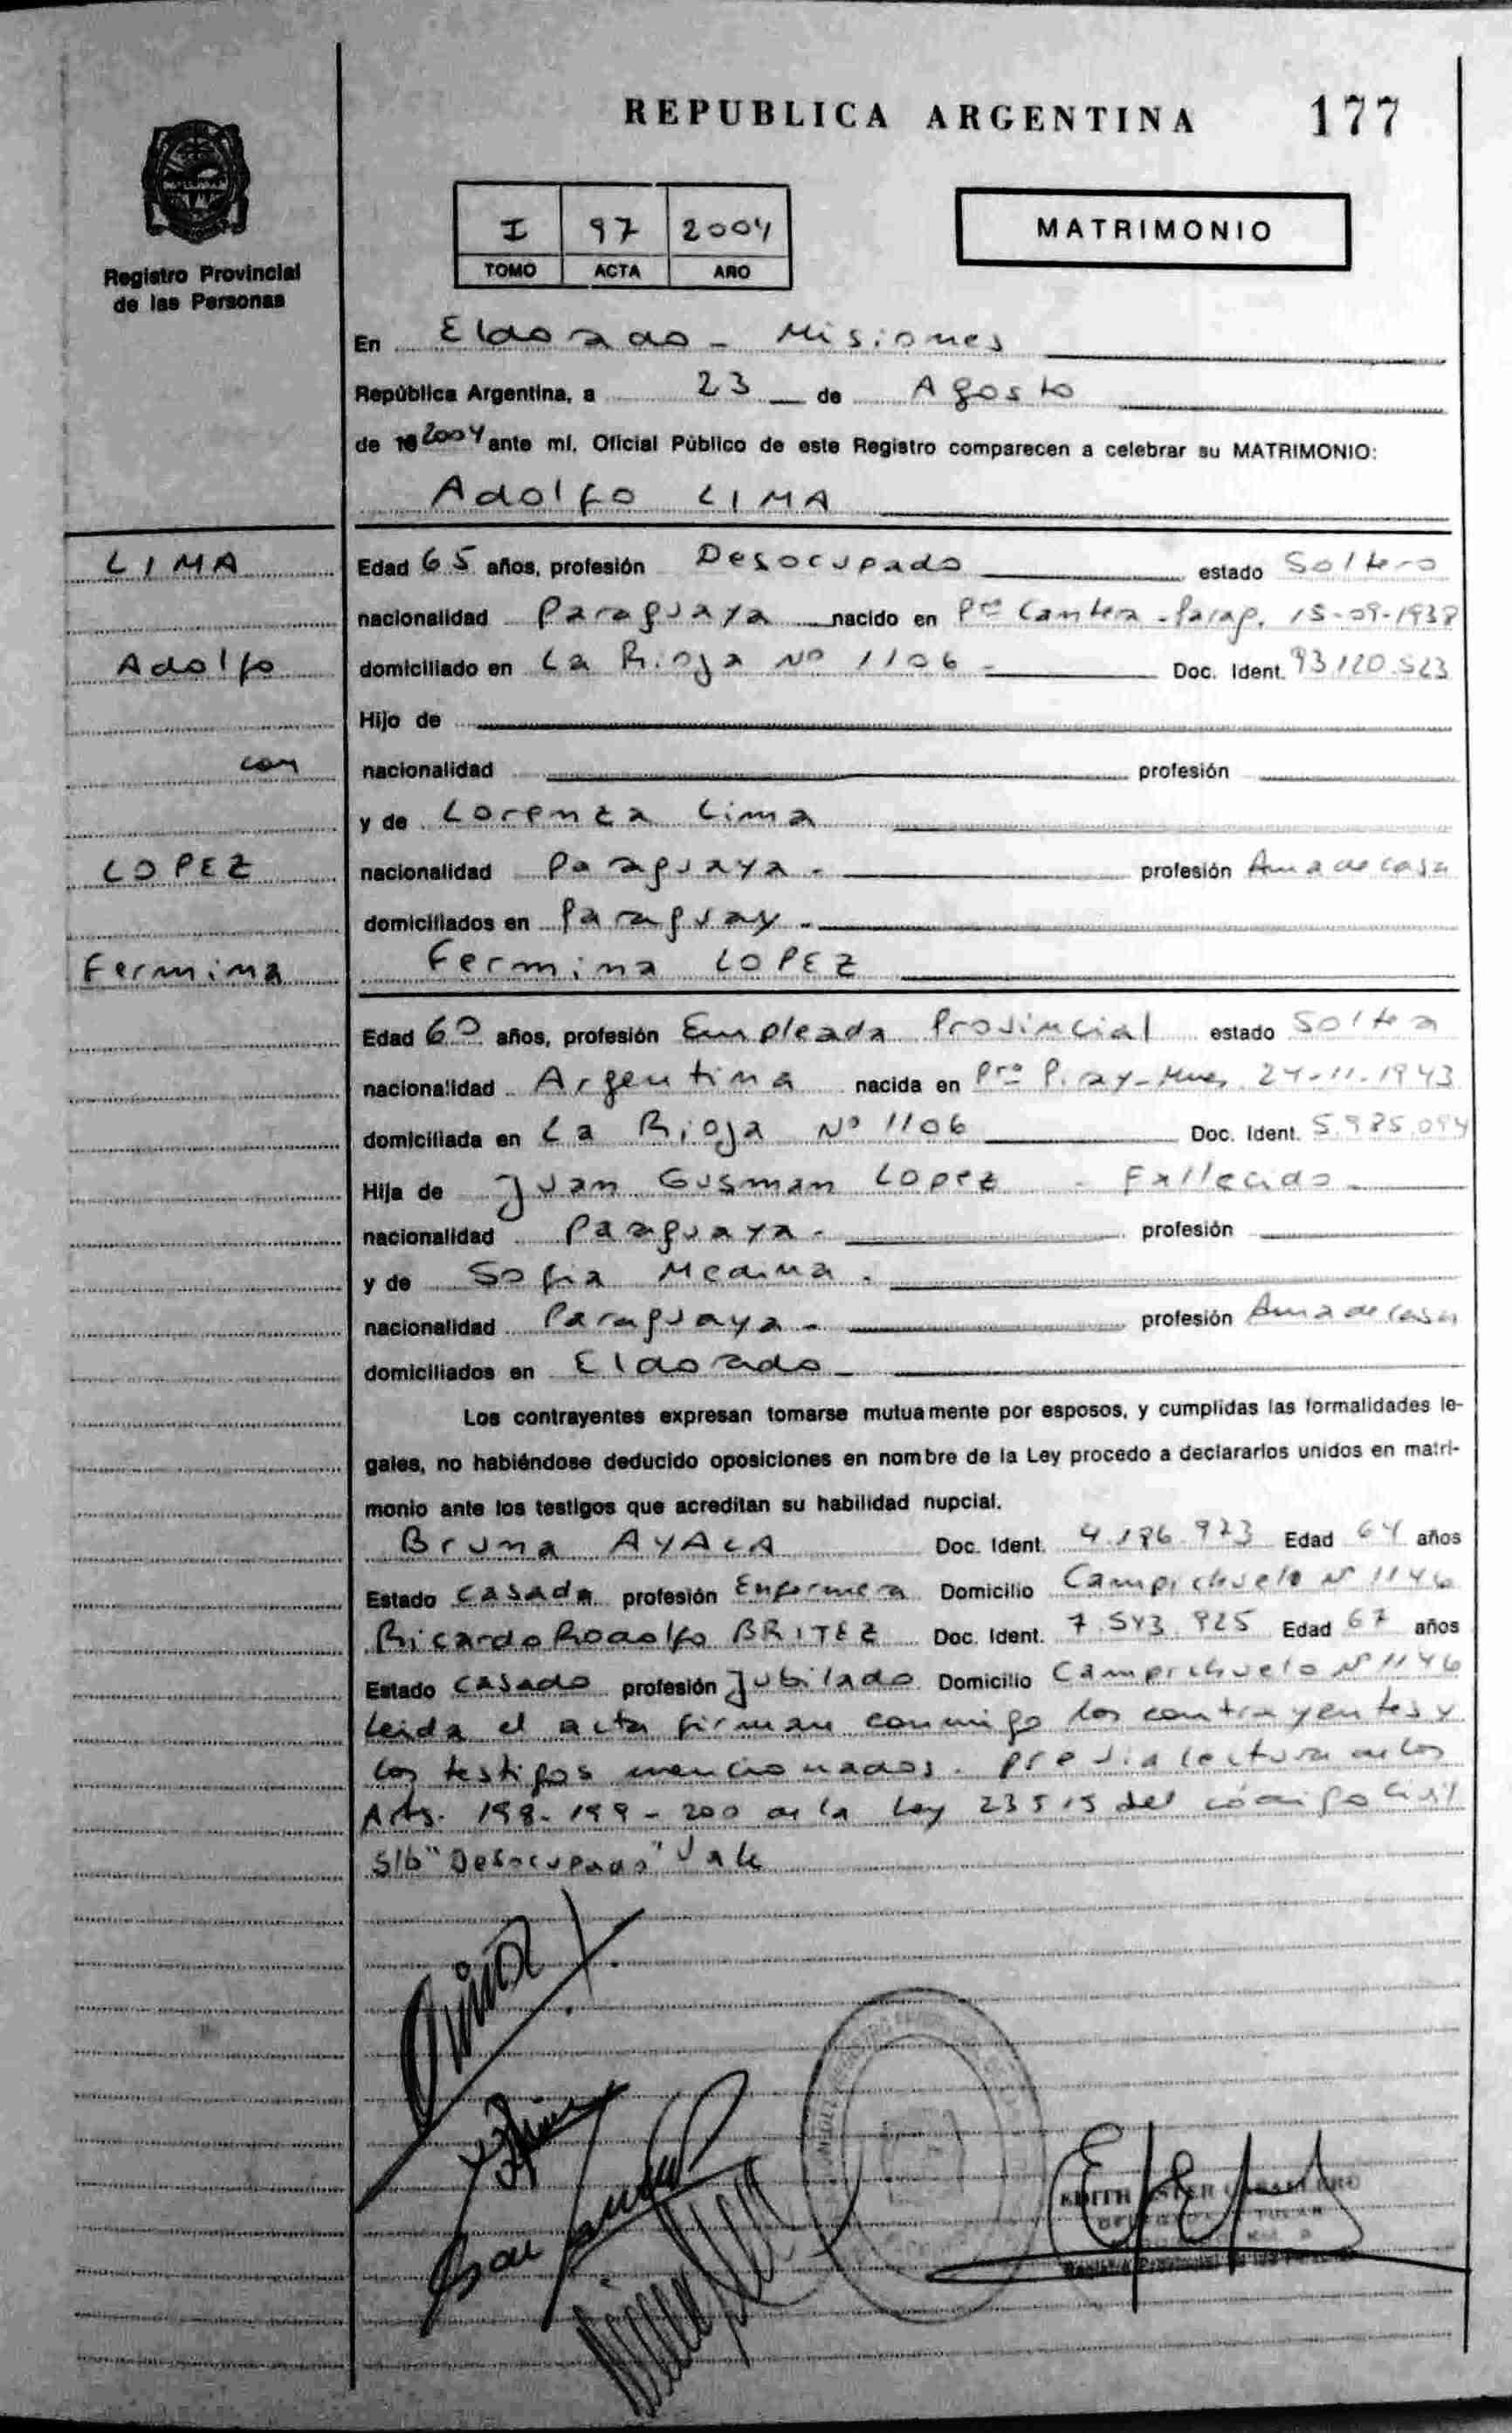 REPUBLICA ARGENTINA 177
I 97 2004
TOMO ACTA AÑO
MATRIMONIO
Registro Provincial
de las Personas
En Eldorado - Misiones
República Argentina, a 23 de Agosto
de 19 2004 ante mí, Oficial Público de este Registro comparecen a celebrar su MATRIMONIO:
Adolfo LIMA
LIMA
Adolfo
con
LOPEZ
Fermina
Edad 65 años, profesión Desocupado estado Soltero
nacionalidad Paraguaya nacido en Pto Cantera - Parag. 15-09-1938
domiciliado en La Rioja Nº 1106 - Doc. Ident. 93.120.523
Hijo de
nacionalidad profesión
y de Lorenza Lima
nacionalidad Paraguaya - profesión Ama de casa
domiciliados en Paraguay -
Fermina LOPEZ
Edad 60 años, profesión Empleada Provincial estado Soltera
nacionalidad Argentina nacida en Pto Piray - Mnes 24-11-1943
domiciliada en La Rioja Nº 1106 Doc. Ident. 5.985.094
Hija de Juan Gusman Lopez - Fallecido -
nacionalidad Paraguaya - profesión
y de Sofia Medina -
nacionalidad Paraguaya - profesión Ama de casa
domiciliados en Eldorado -
Los contrayentes expresan tomarse mutuamente por esposos, y cumplidas las formalidades le-
gales, no habiéndose deducido oposiciones en nombre de la Ley procedo a declararlos unidos en matri-
monio ante los testigos que acreditan su habilidad nupcial.
Bruna AYALA Doc. Ident. 4.186.973 Edad 64 años
Estado Casada profesión Enfermera Domicilio Campichuelo Nº 1146
Ricardo Rodolfo BRITEZ Doc. Ident. 7.543.925 Edad 67 años
Estado Casado profesión Jubilado Domicilio Campichuelo Nº 1146
Leida el acta firman conmigo los contrayentes y
los testigos mencionados. Previa lectura de los
Arts. 198-199-200 de la Ley 23515 del código Civil
S/b "Desocupado" Vale
EDITH ESTER CABALLERO
Registro Provincial de las Personas